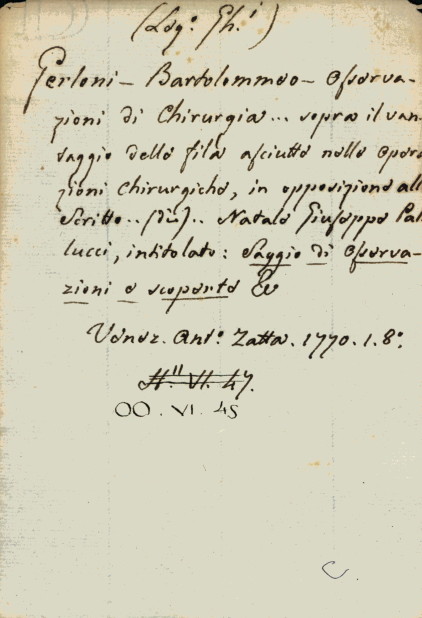 (Log: Gh.i)
Gerloni - Bartolommeo - Osserva-
zioni di Chirurgia... sopra il van-
taggio delle fila asciutte nelle opera
zioni Chirurgiche, in opposizione all
Scritto.. (di).. Natale Giuseppe Pal
lucci, intitolato: Saggio di osserva-
zioni e scoperte &
Venez. Ant.o Zatta. 1770. 1. 8.o
H." VI. 47.
OO. VI. 45
C.